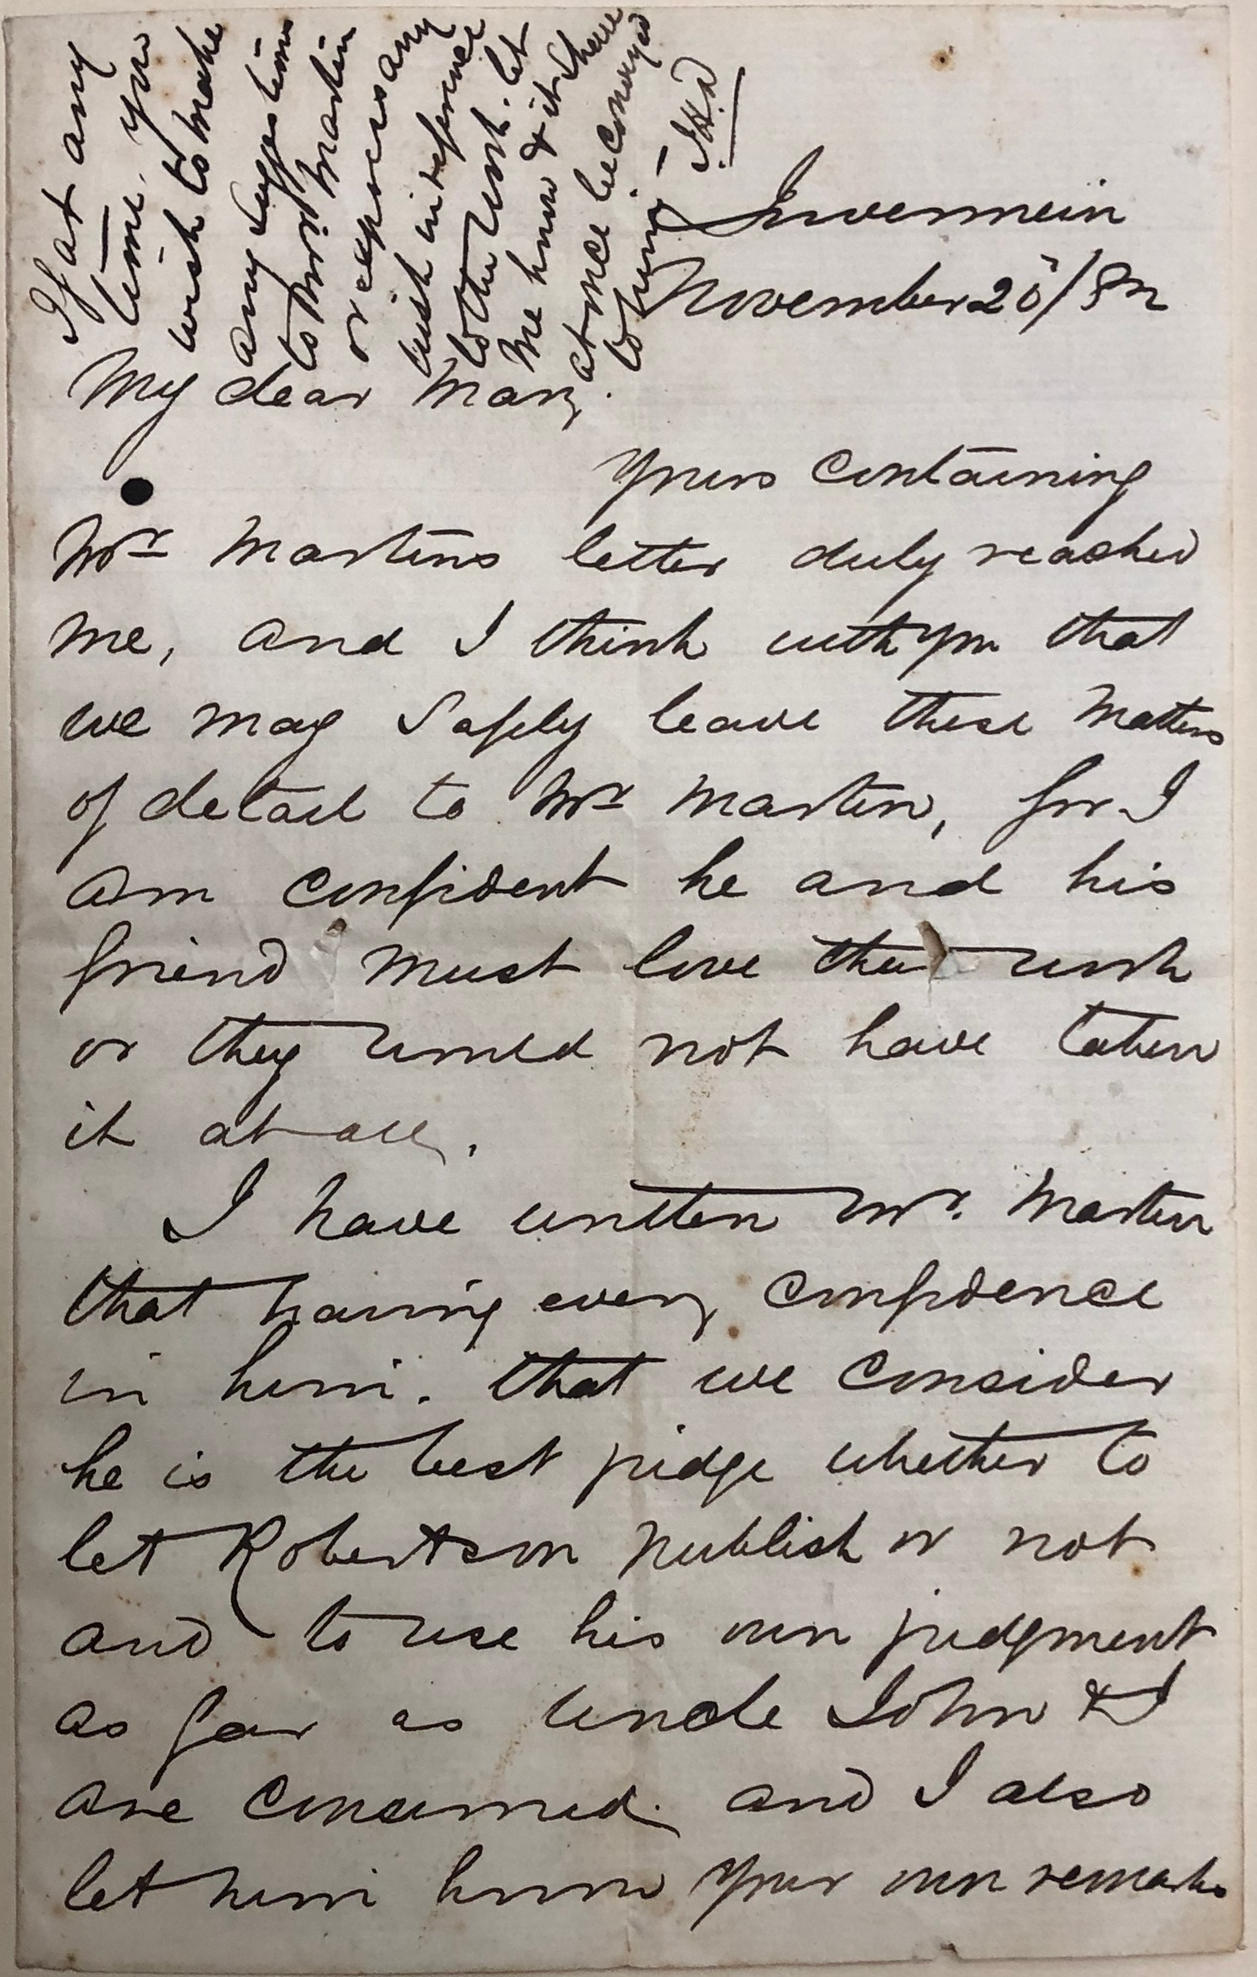 If at any
time you
wish to make
any suggestions
to Mr Martin
or express any
wish in reference
to the work. let
me know & it shall
at once be conveyed
to him -
J.H.D
Invermein
November 20/82
My dear Mary.
Yours containing
Mr Martins letter duly reached
me, and I think with you that
we may safely leave these matters
of detail to Mr Martin, for I
am confident he and his
friend must love their work
or they would not have taken
it at all.
I have written Mr. Martin
that having every confidence
in him. that we consider
he is the best judge whether to
let Robertson publish or not
and to use his own judgment
as far as Uncle John & I
are concerned. and I also
let him know your own remarks